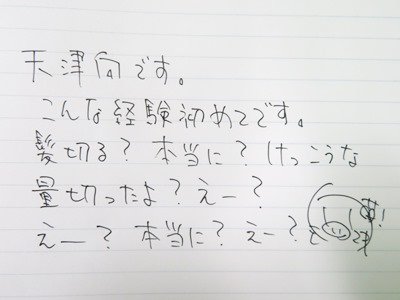 天津向です。
こんな経験初めてです。
髪切る？本当に？けっこうな
量切ったよ？えー？
えー？本当に？えー？